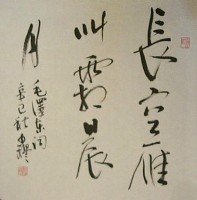 長空雁
叫霜晨
月
毛澤東詞
辛巳秋